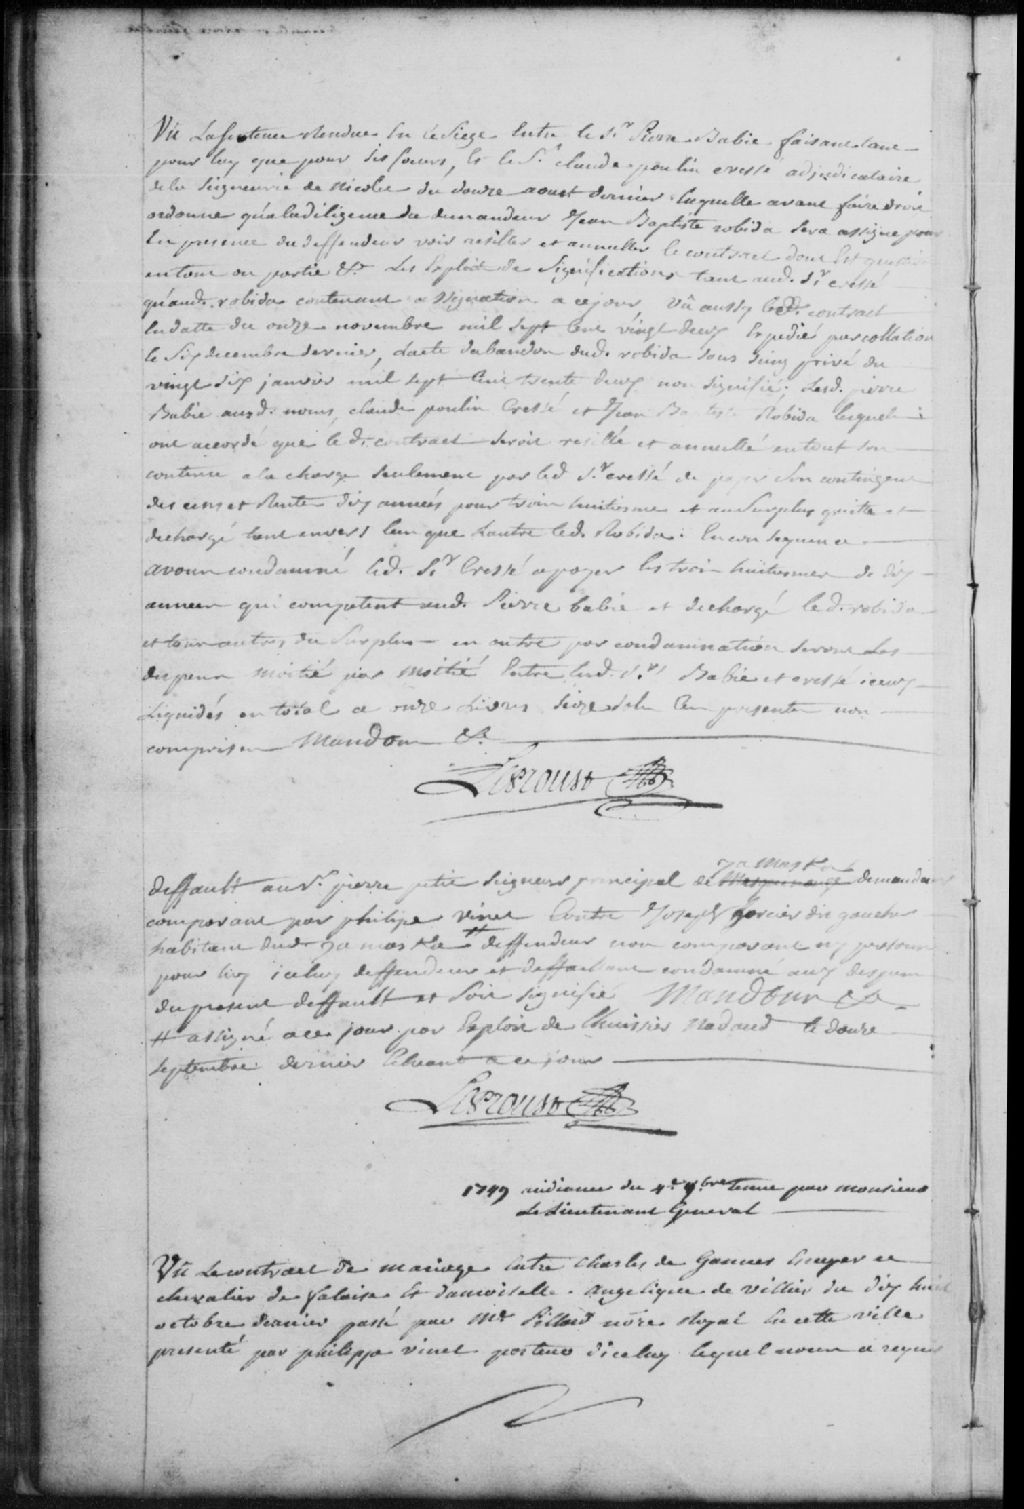 Vu La sentence Rendue En ce siege Entre le Sr. Pierre Babie faisant tant
pour luy que pour ses soeurs, Et le Sr. claude poulin cressé adjudicataire
de la seigneurie de Nicolet du douze aoust dernier laquelle avant faire droit
ordonne qu'a la diligence du demandeur Jean Baptiste robida sera assigné pour
En presence du deffendeur voir resilier et annuller le contract dont Est question
en tout ou partie &a. Les Exploit de Significations tant aud. Sr. cressé
qu'aud. robida contenant assignation a ce jour vû aussy led. contract
En datte du onze novembre mil sept Cent vingt deux Expedié par collation
le six decembre dernier, l'acte d'abandon dud. robida sous seing privé du
vingt six janvier mil sept Cent trente deux non signifié; Lesd. pierre
Babie ausd. noms, claude poulin Cressé et Jean Baptiste Robida lesquels
ont accordé que le d. contract seroit resillé et annullé en tout son
contenu a la charge seulement par led Sr. cressé de payer son contingent
des cens et Rente dix années pour trois huitieme et au Surplus quitte et
dechargé tant envers l'un que l'autre led. Robida: En consequence
avons condamné led. Sr. Cressé a payer les trois huitiemes de dix
années qui competent aud. Pierre babie et dechargé led. robida
et tous autres du Surplus en outre par condamnation seront Les
depens moitié par moitié Entre lesd. Srs. Babie et cressé iceux
Liquidés en total a onze Livres seize sols Ces presentes non
comprises Mandons &a.
Leproust
deffault au Sr. pierre petit seigneur principal de yamaska demandeur
comparant par philipe vinet Contre Joseph forcier dit gaucher
habitant dud. yamaska # deffendeur non comparant ny personne
pour luy iceluy deffendeur et deffaillant condamné aux depens
du present deffault et soit signifié Mandons &a
# assigné a ce jour par Exploit de l'huissier Nadaud le douze
septembre dernier Echeant a ce jour
Leproust
1749 audiance du 4e. 9bre tenue par monsieur
Le Lieutenant General
Vu Le contract de mariage Entre Charles de Gannes Ecuyer et
chevalier de falaise Et damoiselle Angelique de villiers du dix huit
octobre dernier passé par Me Pillard nore. Royal En cette ville
presenté par philippe vinet porteur d'iceluy lequel nous a requis